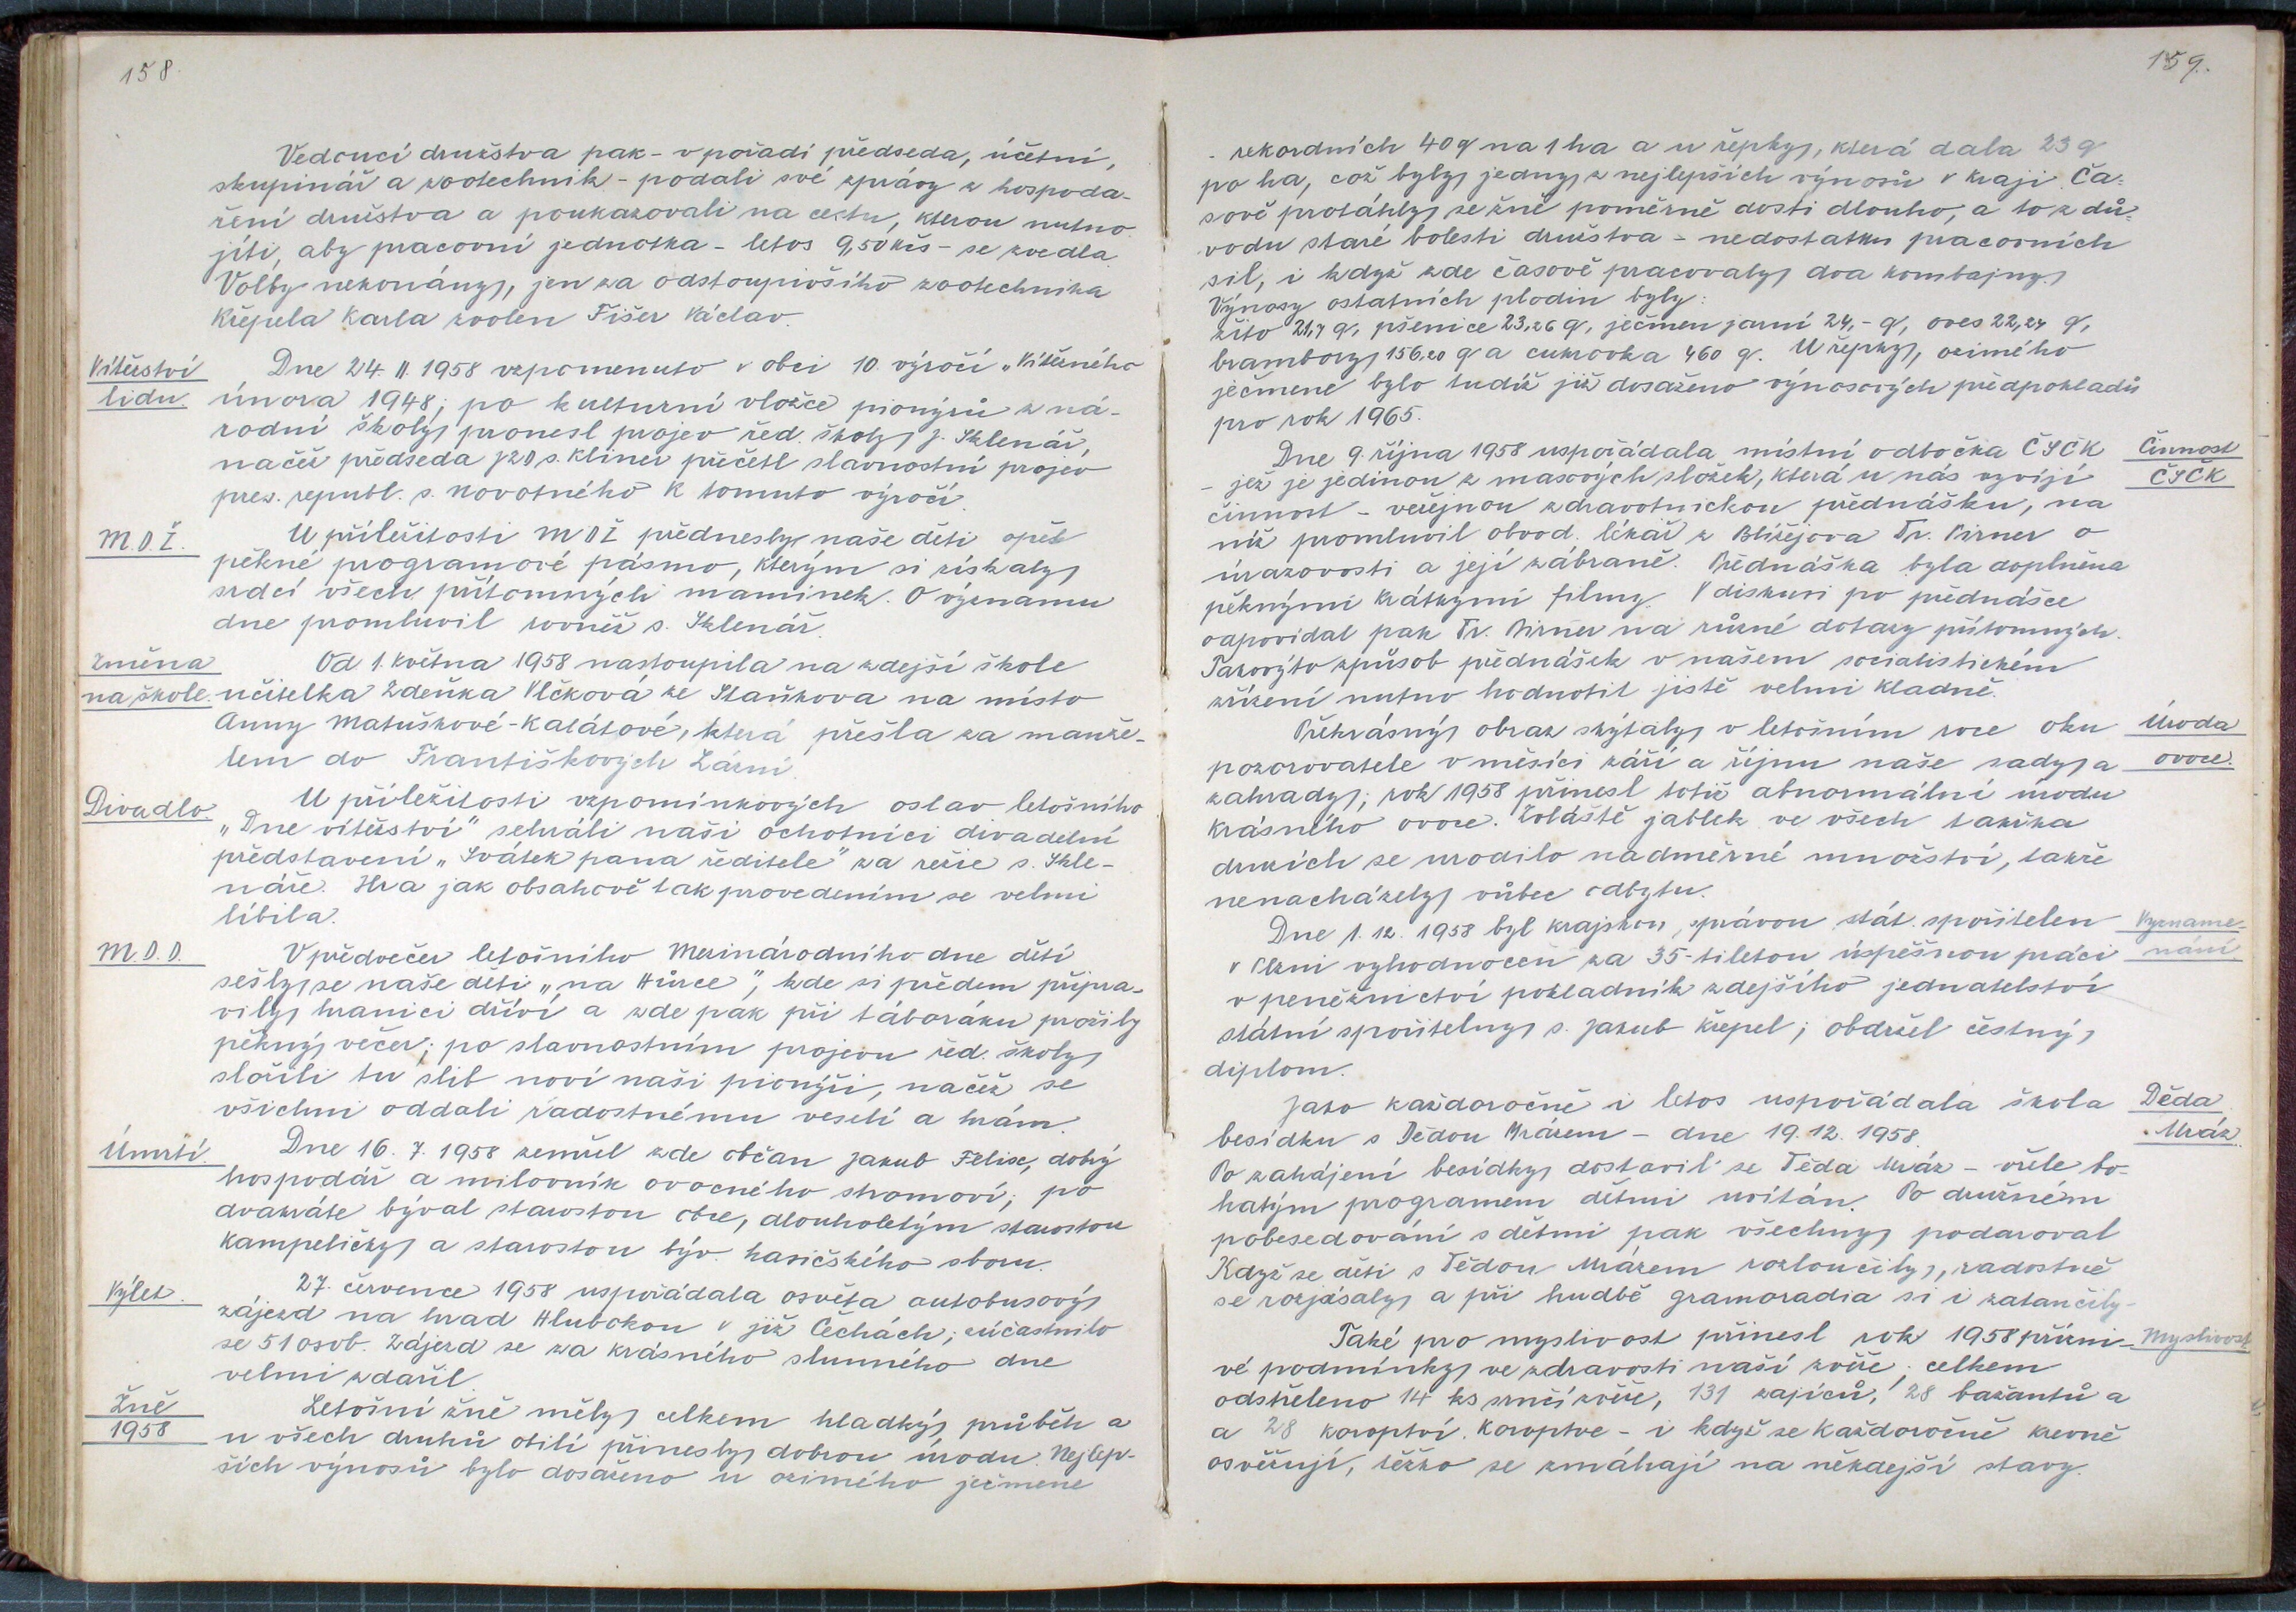 158.
Vedoucí družstva pak - v pořadí předseda, účetní,
skupinář a zootechnik - podali své zprávy z hospoda-
ření družstva a poukazovali na cestu, kterou nutno
jíti, aby pracovní jednotka - letos 9,50 Kčs - se zvedla.
Volby nekonány, jen za odstoupivšího zootechnika
Křepela Karla zvolen Fišer Václav.
Vítězství
lidu.
Dne 24. II. 1958 vzpomenuto v obci 10. výročí „Vítězného
února 1948; po kulturní vložce pionýrů z ná-
rodní školy pronesl projev řed. školy J. Sklenář,
načež předseda JZD s. Kliner přečetl slavnostní projev
pres. republ. s. Novotného k tomuto výročí.
M.D.Ž.
U příležitosti MDŽ přednesly naše děti opět
pěkné programové pásmo, kterým si získaly
srdcí všech přítomných maminek. O významu
dne promluvil rovněž s. Sklenář.
Změna
na škole.
Od 1. května 1958 nastoupila na zdejší škole
učitelka Zdeňka Vlčková ze Staňkova na místo
Anny Matuškové-Kalátové, která přešla za manže-
lem do Františkových Lázní.
Divadlo.
U příležitosti vzpomínkových oslav letošního
„Dne vítězství" sehráli naši ochotníci divadelní
představení „Svátek pana ředitele" za režie s. Skle-
náře. Hra jak obsahově tak provedením se velmi
líbila.
M.D.D.
V předvečer letošního Mezinárodního dne dětí
sešly se naše děti „na Hůrce", kde si předem připra-
vily hranici dříví a zde pak při táboráku prožily
pěkný večer; po slavnostním projevu řed. školy
složili tu slib noví naši pionýři, načež se
všichni oddali radostnému veselí a hrám.
Úmrtí.
Dne 16. 7. 1958 zemřel zde občan Jakub Felix, dobrý
hospodář a milovník ovocného stromoví; po
dvakráte býval starostou obce, dlouholetým starostou
kampeličky a starostou býv. hasičského sboru.
Výlet.
27. července 1958 uspořádala osvěta autobusový
zájezd na hrad Hlubokou v již. Čechách; zúčastnilo
se 51 osob. Zájezd se za krásného slunného dne
velmi zdařil.
Žně
1958
Letošní žně měly celkem hladký průběh a
u všech druhů obilí přinesly dobrou úrodu. Nejlep-
ších výnosů bylo dosaženo u ozimého ječmene
159.
- rekordních 40 q na 1 ha a u řepky, která dala 23 q
po ha, což byly jedny z nejlepších výnosů v kraji. Ča-
sově protáhly se žně poměrně dosti dlouho, a to z dů-
vodu staré bolesti družstva - nedostatku pracovních
sil, i když zde časově pracovaly dva kombajny.
Výnosy ostatních plodin byly:
žito 21,7 q, pšenice 23,26 q, ječmen jarní 24,- q, oves 22,24 q,
brambory 156,20 q a cukrovka 460 q. U řepky, ozimého
ječmene bylo tudíž již dosaženo výnosových předpokladů
pro rok 1965.
Dne 9. října 1958 uspořádala místní odbočka ČSČK
- jež je jedinou z masových složek, která u nás vyvíjí
činnost - veřejnou zdravotnickou přednášku, na
níž promluvil obvod. lékař z Blížejova Dr. Pirner o
úrazovosti a její zábraně. Přednáška byla doplněna
pěknými krátkými filmy. V diskusi po přednášce
odpovídal pak Dr. Pirner na různé dotazy přítomných.
Takovýto způsob přednášek v našem socialistickém
zřízení nutno hodnotit jistě velmi kladně.
Činnost
ČSČK
Překrásný obraz skýtaly v letošním roce oku
pozorovatele v měsíci září a říjnu naše sady a
zahrady; rok 1958 přinesl totiž abnormální úrodu
krásného ovoce. Zvláště jablek ve všech takřka
druzích se urodilo nadměrné množství, takže
nenacházely vůbec odbytu.
Úroda
ovoce.
Dne 1. 12. 1958 byl krajskou správou stát. spořitelen
v Plzni vyhodnocen za 35-tiletou úspěšnou práci
v peněžnictví pokladník zdejšího jednatelství
státní spořitelny s. Jakub Křepel; obdržel čestný
diplom.
Vyzname-
nání
Jako každoročně i letos uspořádala škola
besídku s Dědou Mrázem - dne 19. 12. 1958.
Po zahájení besídky dostavil se Děda Mráz - vřele bo-
hatým programem dětmi uvítán. Po družném
pobesedování s dětmi pak všechny podaroval
Když se děti s Dědou Mrázem rozloučily, radostně
se rozjásaly a při hudbě gramoradia si i zatančily-
Děda
Mráz.
Také pro myslivost přinesl rok 1958 přízni-
vé podmínky ve zdravosti naší zvěře; celkem
odstřeleno 14 ks srnčí zvěře, 131 zajíců, 28 bažantů a
a 28 koroptví. Koroptve - i když se každoročně krevně
osvěžují, těžko se zmáhají na někdejší stavy.
Myslivost